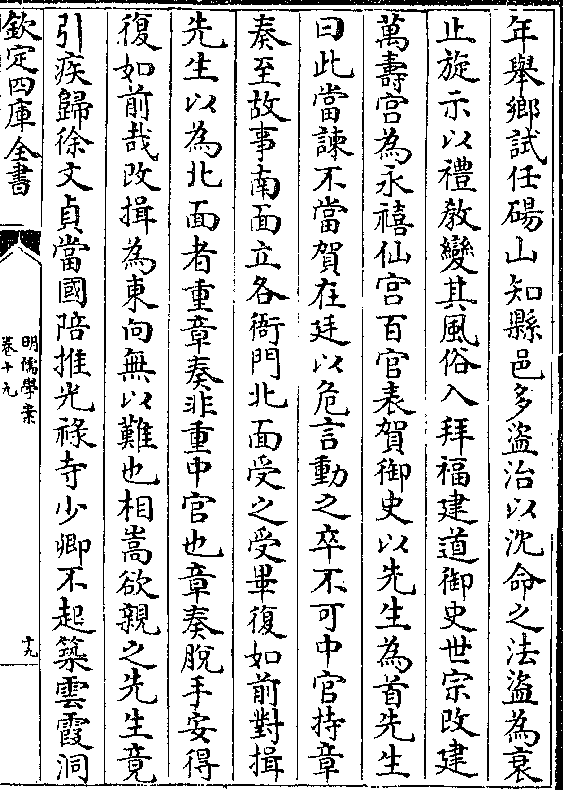 年舉鄉試任碭山知縣邑多盜治以沈命之法盜為衰
止旋示以禮教變其風俗入拜福建道御史世宗改建
萬壽宮為永禧仙宮百官表賀御史以先生為首先生
曰此當諫不當賀在廷以危言動之卒不可中官持章
奏至故事南面立各衙門北面受之受畢復如前對揖
先生以為北面者重章奏非重中官也章奏脫手安得
復如前哉改揖為東向無以難也相嵩欲親之先生竟
引疾歸徐文貞當國陪推光祿寺少卿不起築雲霞洞
欽定四庫全書
明儒學案
卷十九
十九